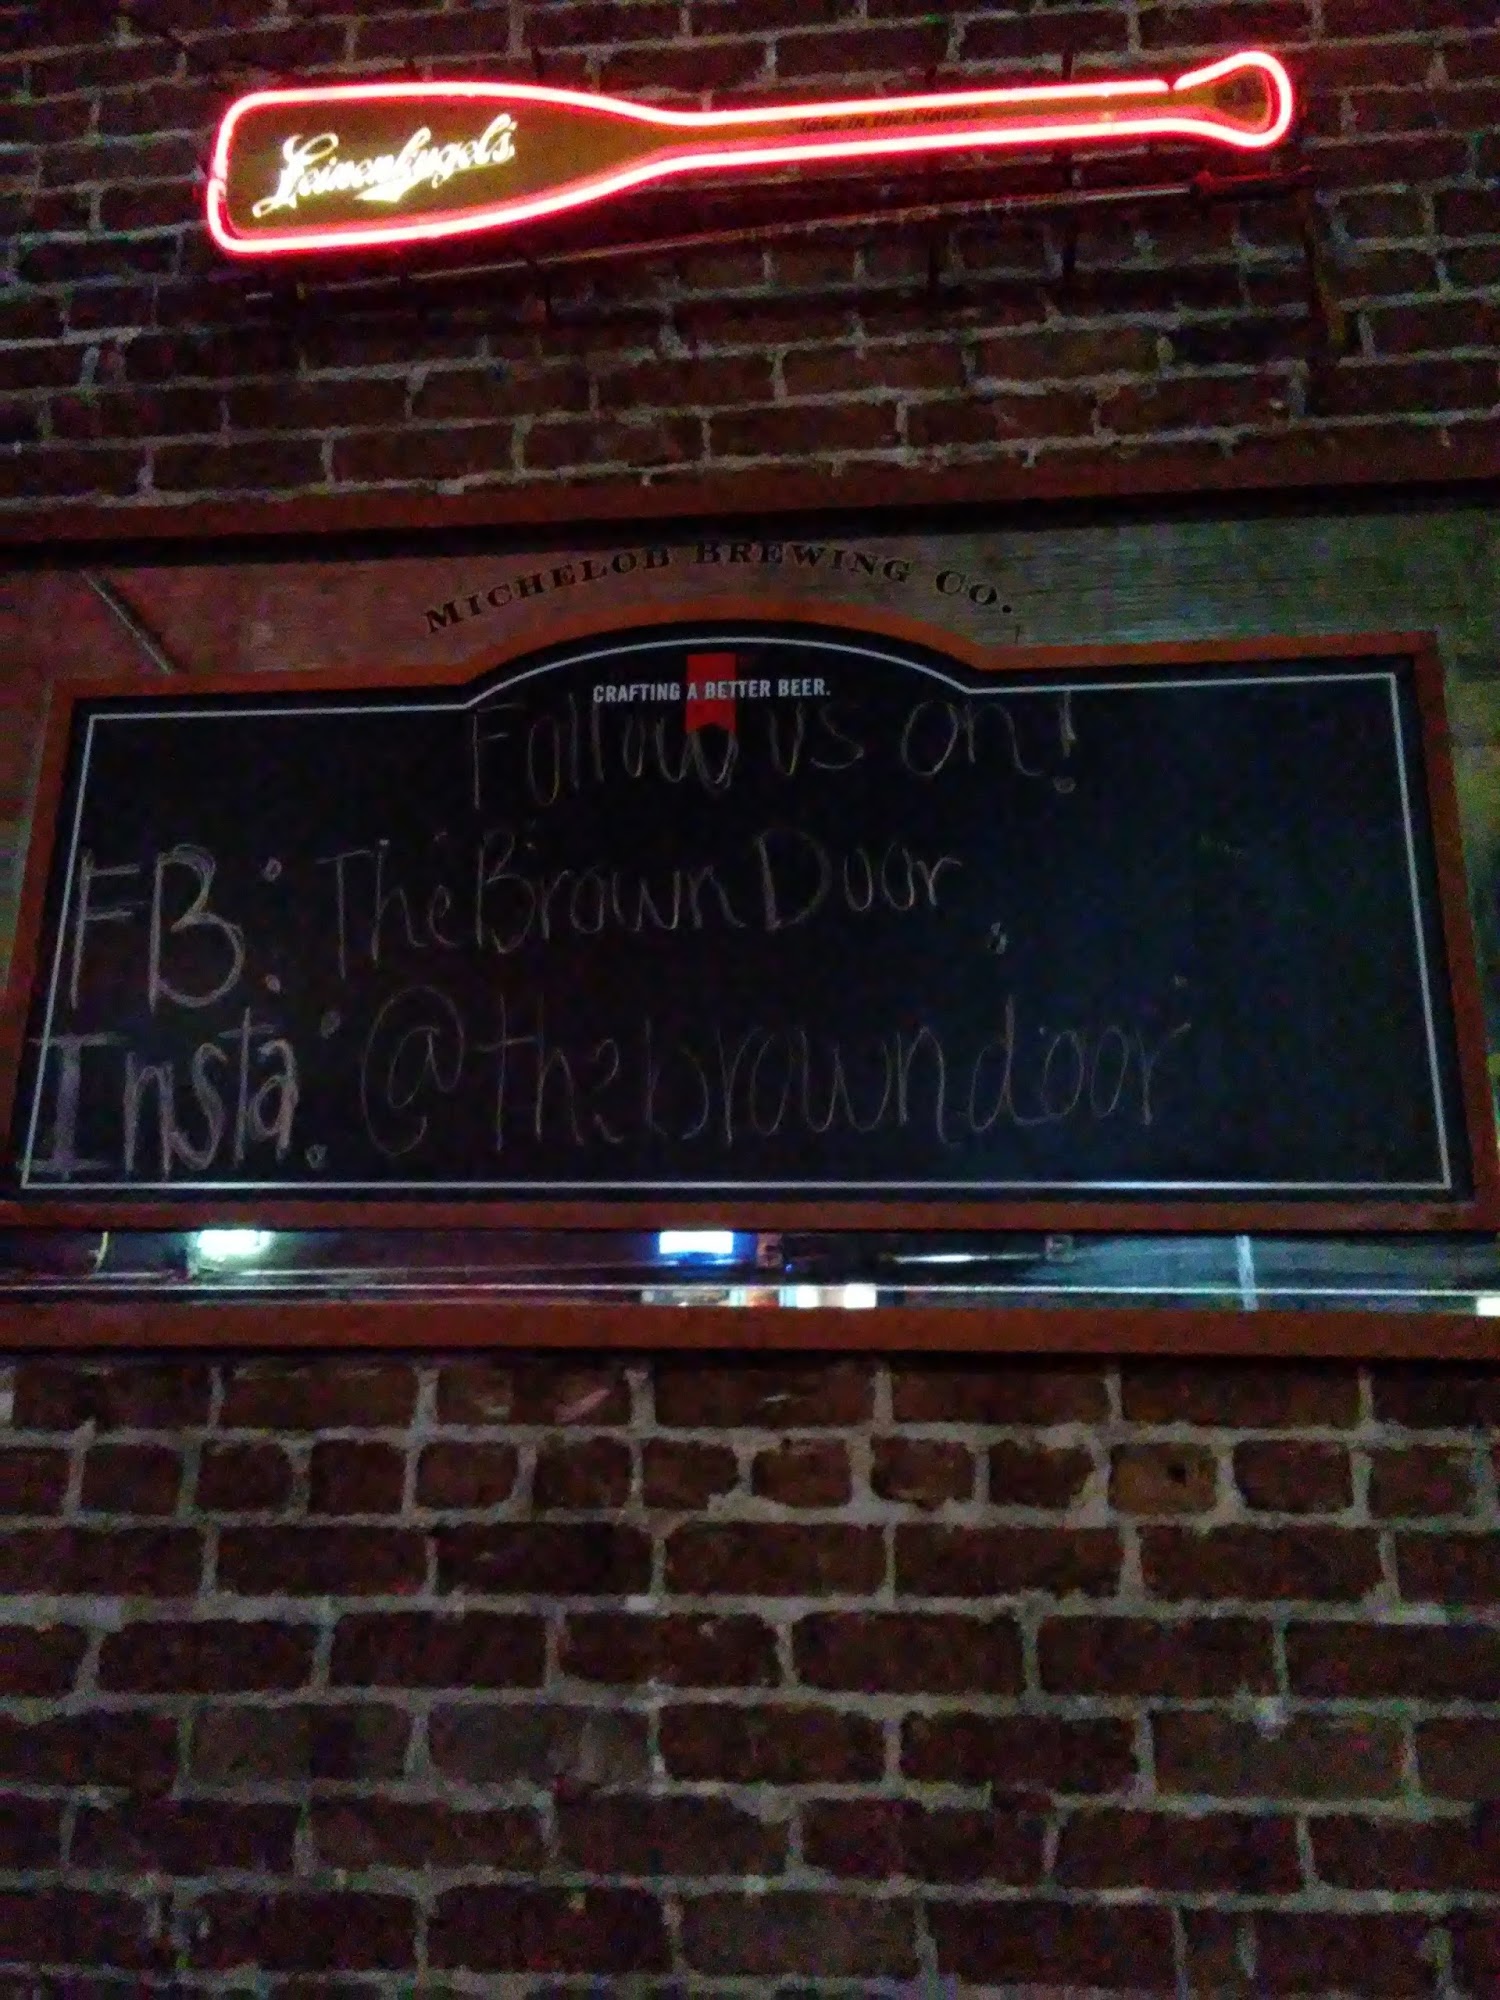 Leinenkugel's
MICHELOB BREWING CO.
CRAFTING A BETTER BEER.
Follow us on!
FB: The Brown Door
Insta: @thebrowndoor